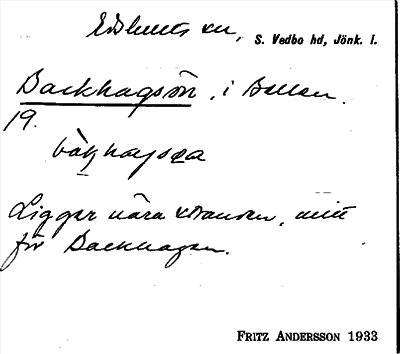 Edshults sn, S. Vedbo hd, Jönk. l.
Backhagsön, i Bellen.
19.
Ligger nära stranden, mitt
för Backhagen.
FRITZ ANDERSSON 1933